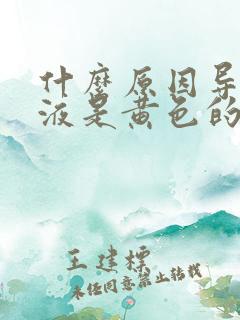 什麽原因导
液是黄色的
王建标
未经同意禁止转载